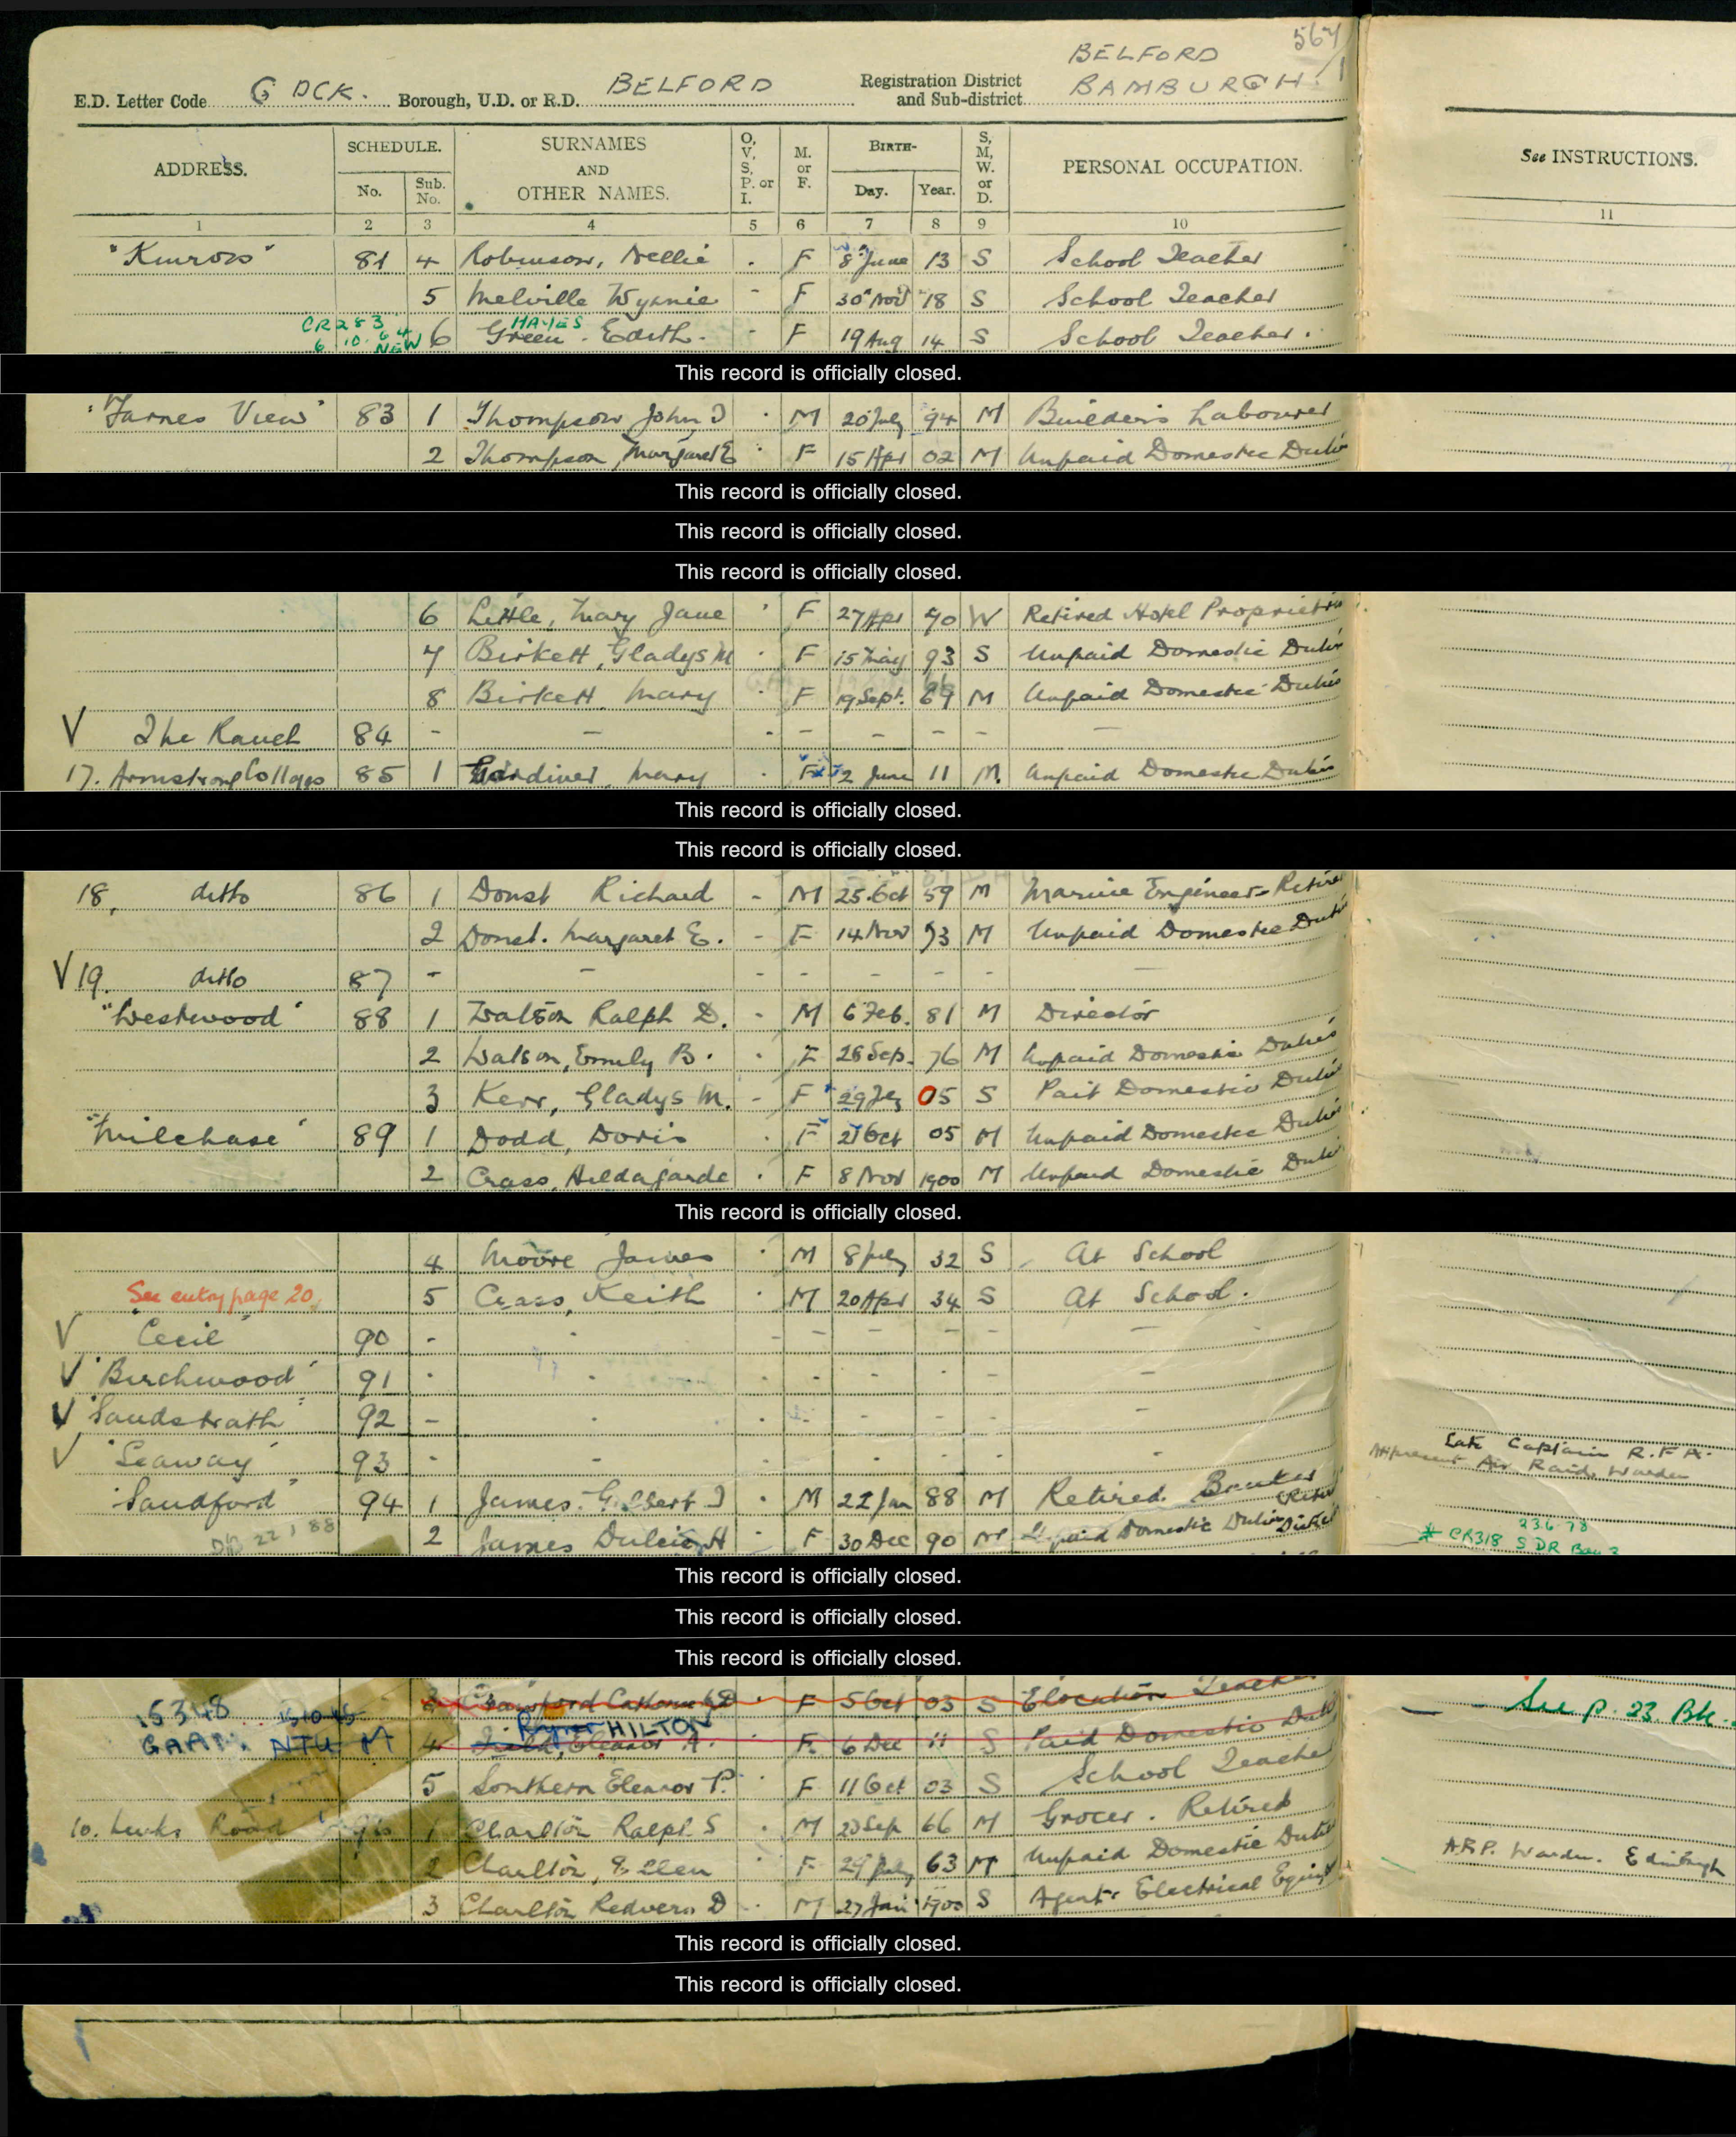 564
BELFORD
E.D. Letter Code G DCK. Borough, U.D. or R.D. BELFORD Registration District and Sub-district BAMBURGH. 1
ADDRESS. SCHEDULE. No. Sub. No. SURNAMES AND OTHER NAMES. O, V, S, P. or I. M. or F. BIRTH- Day. Year. S, M, W. or D. PERSONAL OCCUPATION. See INSTRUCTIONS.
1 2 3 4 5 6 7 8 9 10 11
"Kinross" 81 4 Robinson, Nellie . F 8 June 13 S School Teacher
5 Melville Wynnie - F 30 Nov 18 S School Teacher
CR283 HAYES
6.10.64 NEW 6 Green. Edith. - F 19 Aug 14 S School Teacher.
This record is officially closed.
"Farnes View" 83 1 Thompson John J . M 20 July 94 M Builders Labourer
2 Thompson, Margaret E . F 15 Apr 02 M Unpaid Domestic Duties
This record is officially closed.
This record is officially closed.
This record is officially closed.
6 Little, Mary Jane . F 27 Apr 70 W Retired Hotel Proprietrix
7 Birkett, Gladys M . F 15 May 93 S Unpaid Domestic Duties
8 Birkett Mary . F 19 Sept. 69 M Unpaid Domestic Duties
V The Ranch 84 - - - - - - - -
17. Armstrong Cottages 85 1 Gardiner, Mary . F 2 June 11 M. Unpaid Domestic Duties
This record is officially closed.
This record is officially closed.
18, ditto 86 1 Richard - M 25. Oct 59 M Marine Engineer - Retired
2 Margaret E. - F 14 Nov 73 M Unpaid Domestic Duties
V 19. ditto 87 - - - - - - - -
"Westwood" 88 1 Watson Ralph D. - M 6 Feb. 81 M Director
2 Watson, Emily B. . F 26 Sep. 76 M Unpaid Domestic Duties
3 Kerr, Gladys M. - F 29 05 S Paid Domestic Duties
"Milchase" 89 1 Dodd, Doris . F 21 Oct 05 M Unpaid Domestic Duties
2 Crass, Hildagarde . F 8 Nov 1900 M Unpaid Domestic Duties
This record is officially closed.
4 Moore James . M 8 July 32 S At School
See entry page 20. 5 Crass, Keith . M 20 Apr 34 S At School.
V "Cecil" 90 - - - - - - -
V "Birchwood" 91 - - - - - - -
V "Sandstrath" 92 - - - - - - -
V "Seaway" 93 - - - - - - -
Late Captain R.F.A.
At present Air Raid Warden
"Sandford" 94 1 James. Gilbert J . M 22 Jan 88 M Retired. Banker
DR 22 1 88 2 James Dulcie H - F 30 Dec 90 M Unpaid Domestic Duties
23 6 78
CR318 S DR
This record is officially closed.
This record is officially closed.
This record is officially closed.
F 5 Oct 03 S Elocution Teacher See p. 23 Bk.
HILTON
4 Eleanor A. F. 6 Dec 11 S Paid Domestic Duties
5 Southern Eleanor P. F 11 Oct 03 S School Teacher
10. Road 1 Charlton Ralph S . M 23 Sep 66 M Grocer. Retired
2 Charlton, Ellen . F 29 July 63 M Unpaid Domestic Duties A.R.P. Warden. Edinburgh
3 Charlton Redvers D . M 27 Jan 1900 S Agent. Electrical
This record is officially closed.
This record is officially closed.